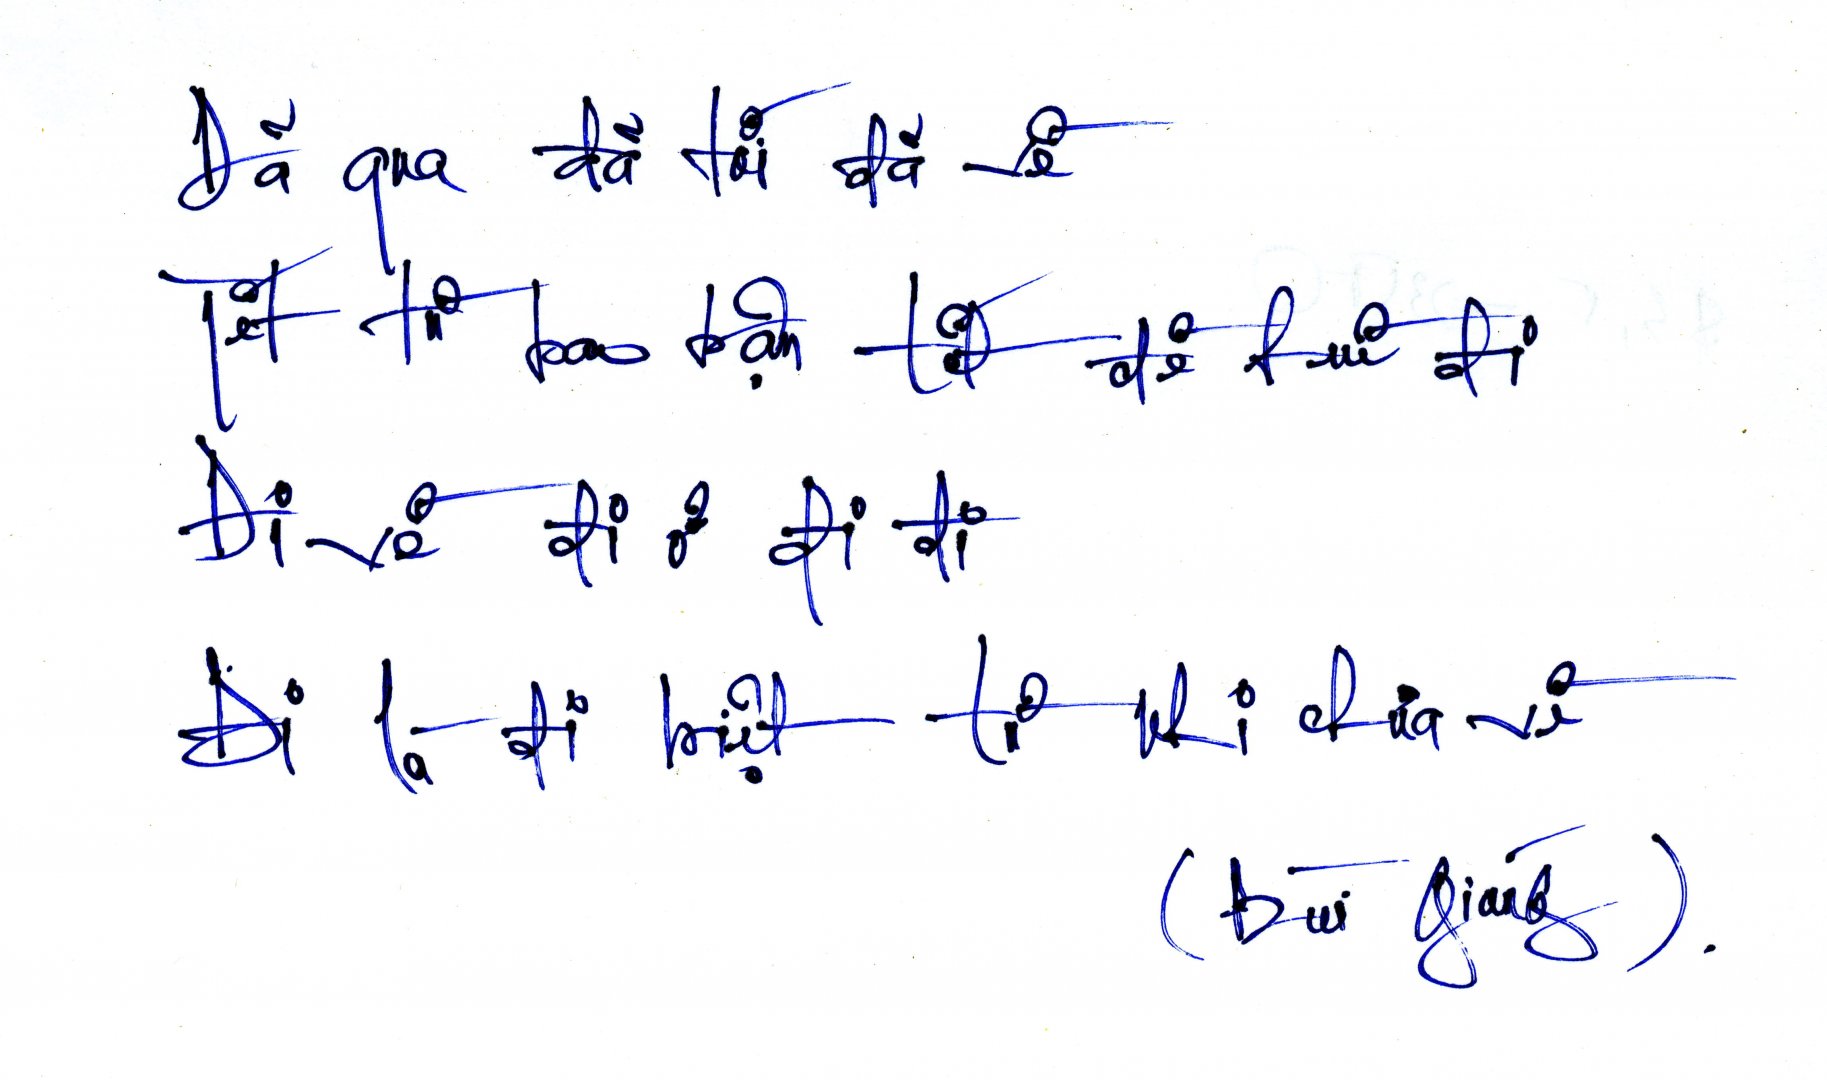 Đã qua đã tới đã về
Tết từ bao bận tết đề huề đi
Đi về đi ở đi đi
Đi là đi biệt từ khi chưa về
(Bùi Giáng).